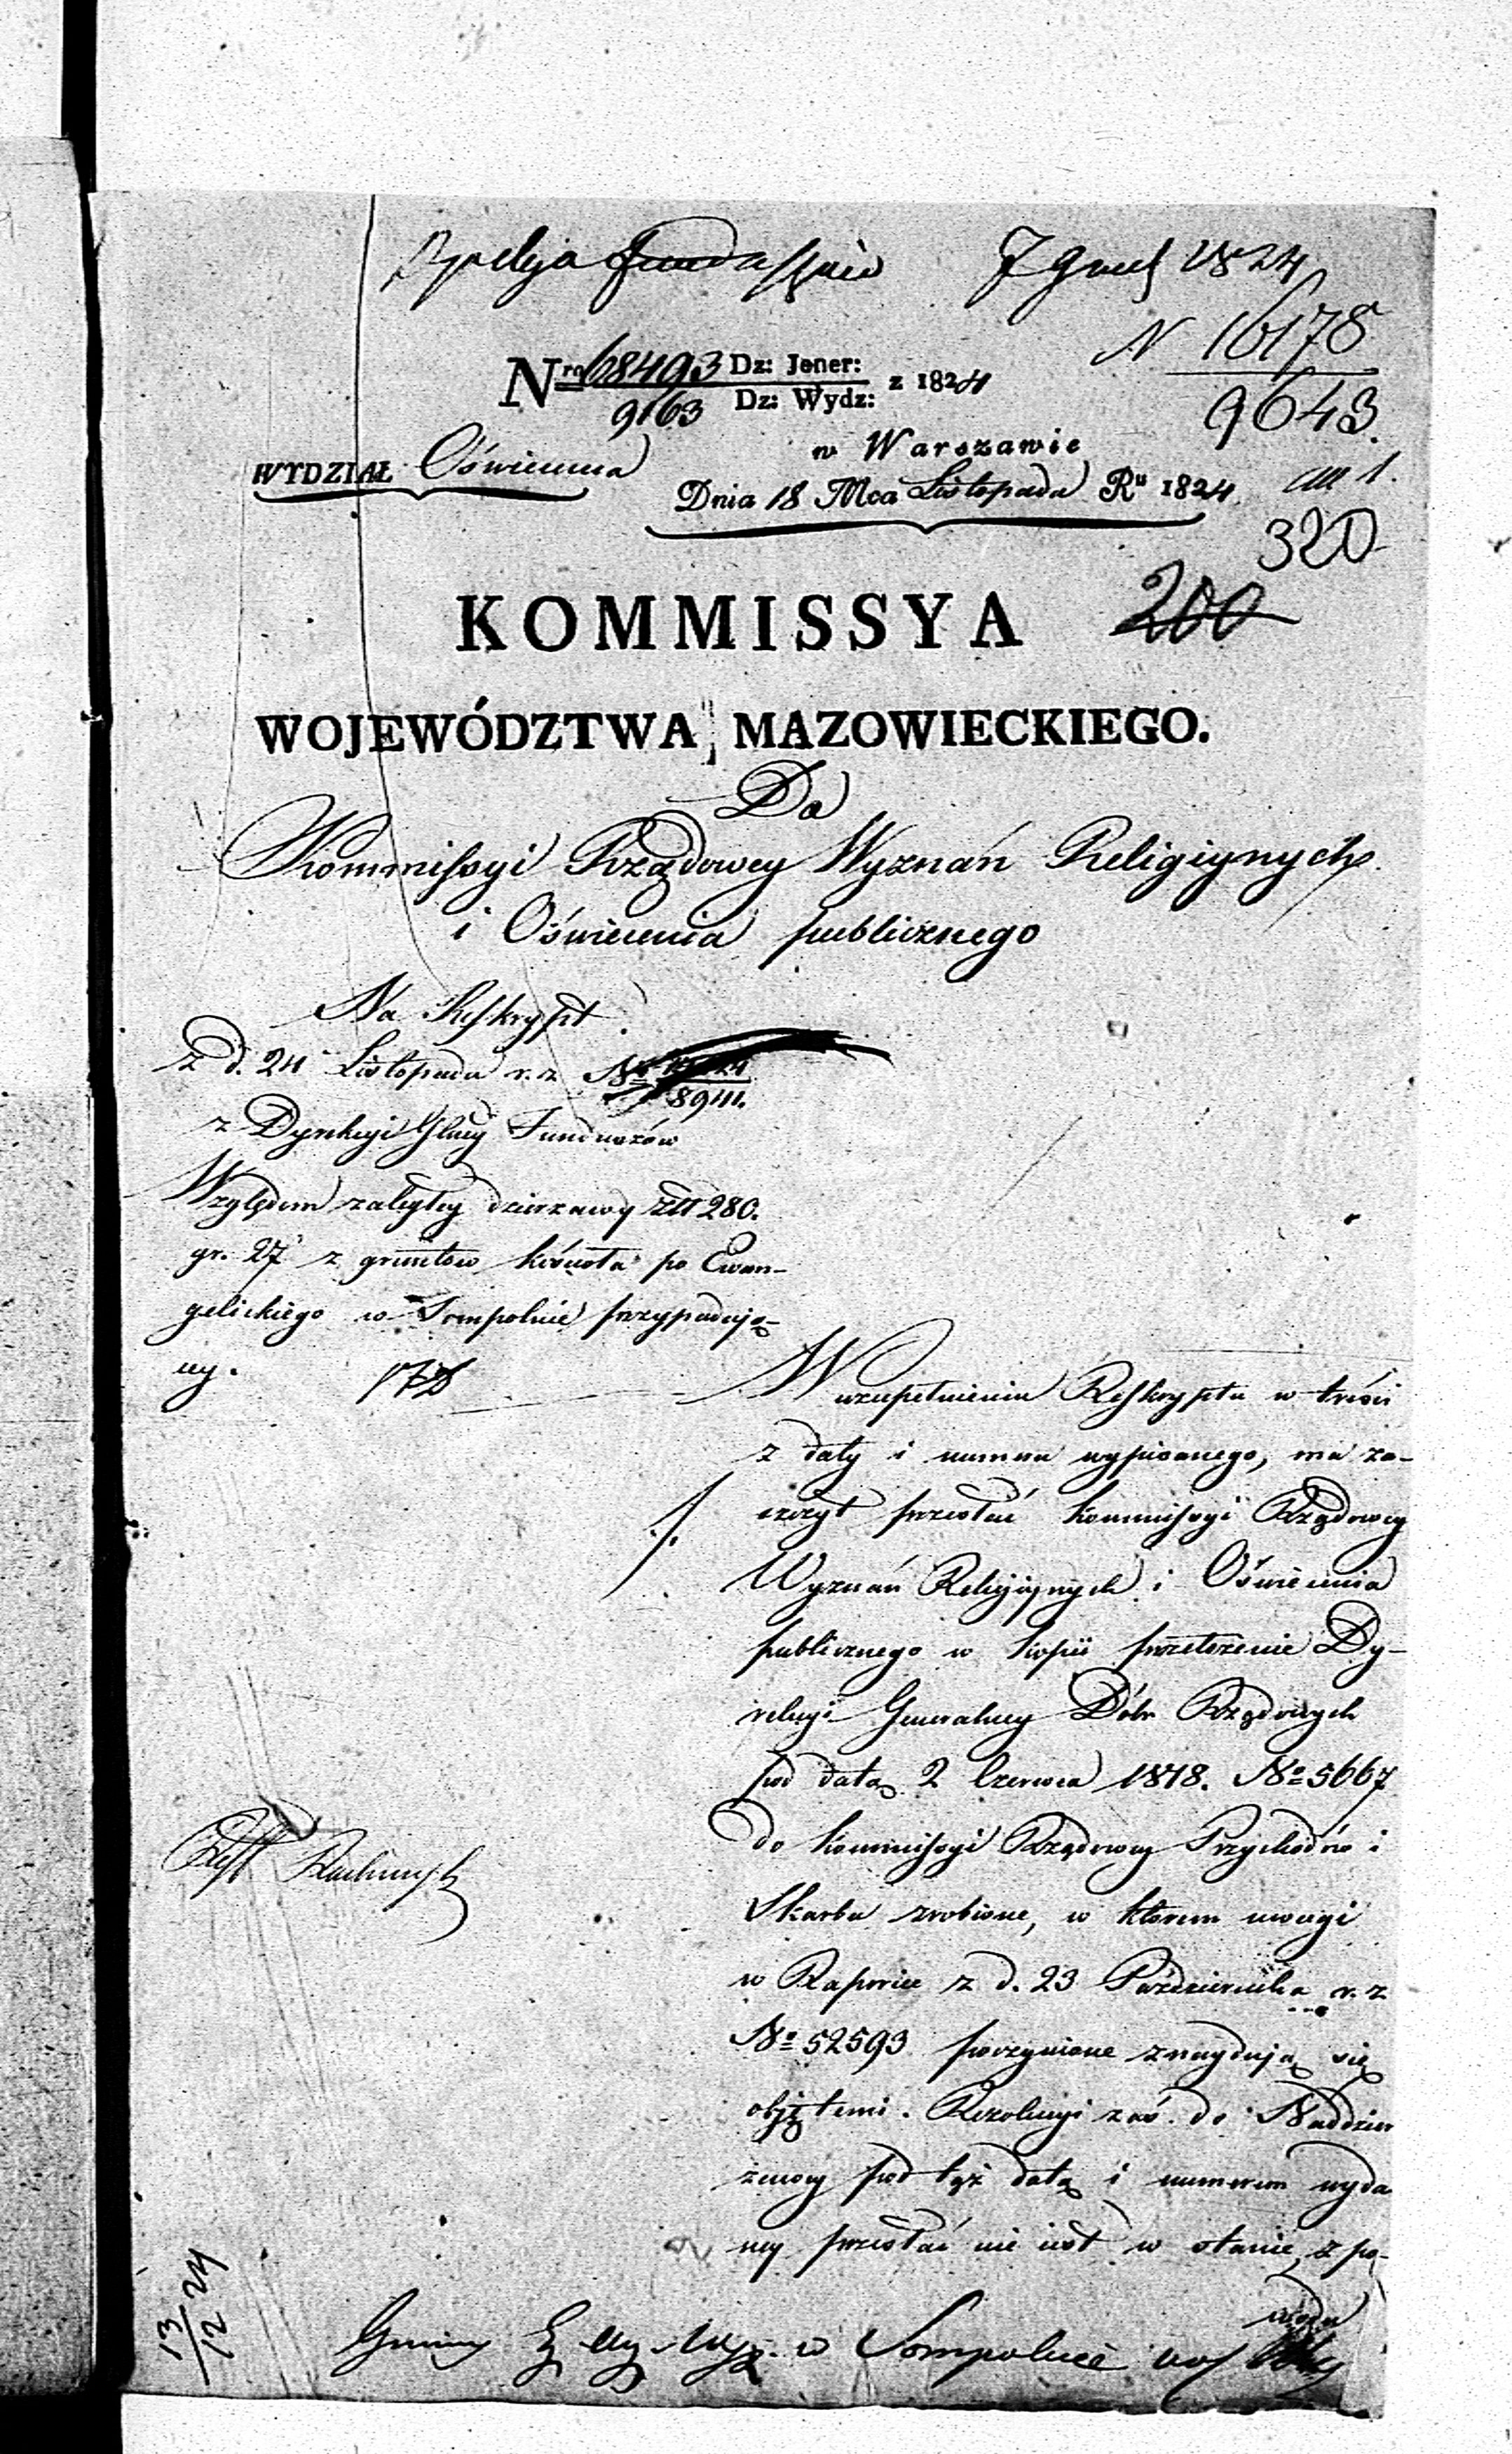 7 Grud 1824
N 16178
9643.
Nro 68493 Dz: Jener: z 1824
9163 Dz: Wydz:
w Warszawie
WYDZIAŁ Oświecenia
Dnia 18 Mca Listopada Ru 1824
320
200
KOMMISSYA
WOJEWÓDZTWA MAZOWIECKIEGO.
Do
Kommissyi Rządowey Wyznań Religiynych
i Oświecenia publicznego
Na Reskrypt
z d. 24 Listopada r. z No
8941.
z Dyrekcyi Głney Funduszów
Względem zaległey dzierzawy Złt 280.
gr. 27 z gruntów kościoła po Ewan-
gelickiego w Sompolnie przypadaią-
cey.
W uzupełnieniu Reskryptu w treści
z daty i numeru wypisanego, ma za-
szczyt przesłać Kommissyi Rządowey
Wyznań Religiynych i Oświecenia
publicznego w kopii przełożenie Dy-
rekcyi Generalney Dóbr Rządowych
pod datą 2 Czerwca 1818. No 5667
do Kommissyi Rządowey Przychodów i
Skarbu zrobione, w którem uwagi
w Raporcie z d. 23 Października r. z
No 52593 poczynione znayduią się
objętemi. Rezolucyi zaś do Naddzier
żawcy pod tąż datą i numerem wyda
ney przesłać nie iest w stanie, z po-
wodu
Gminy w Sompolnie
13/12 24